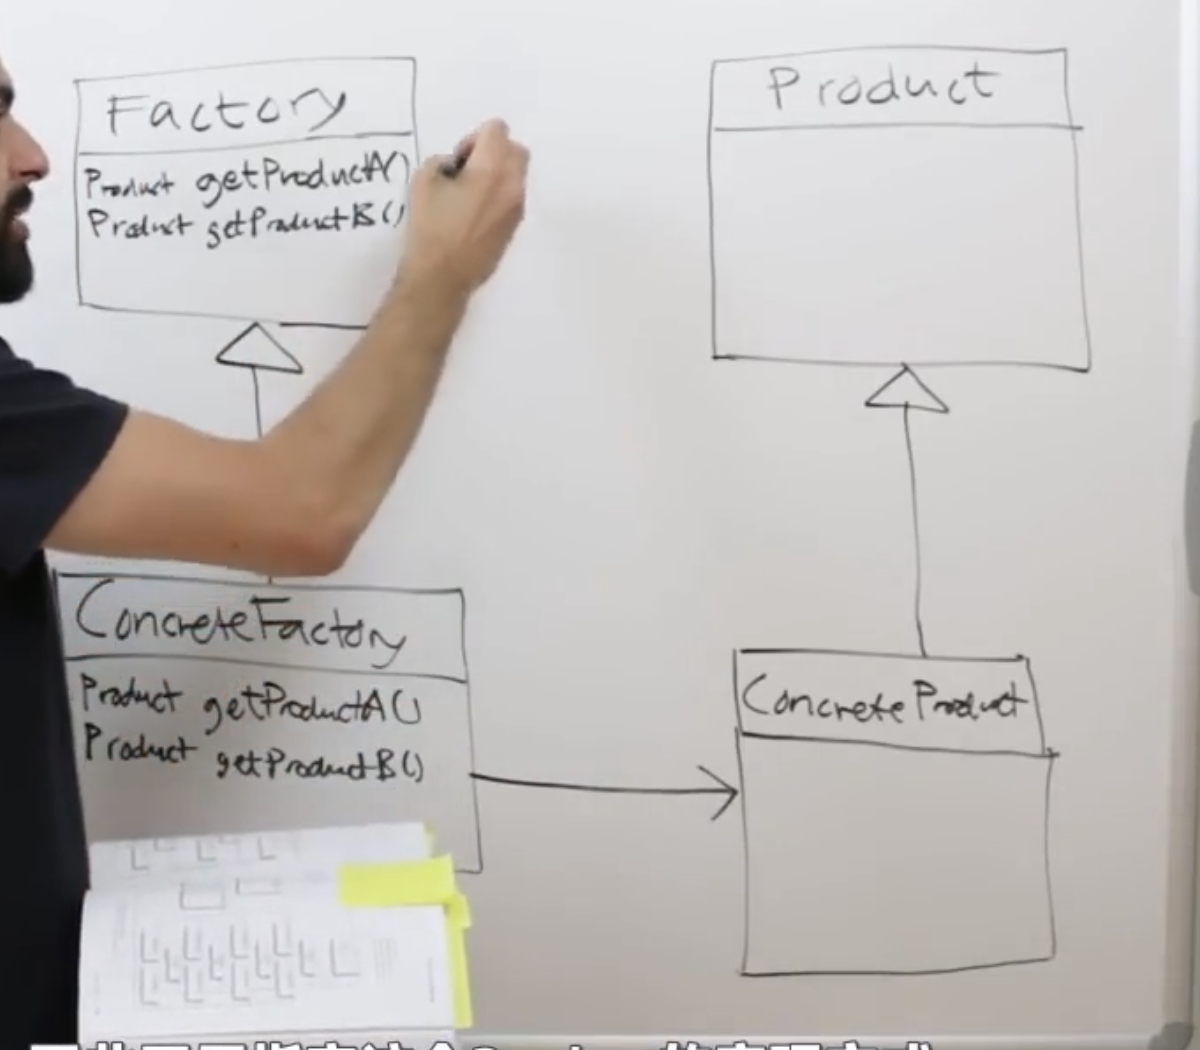 Factory
Product getProductA()
Product getProductB()
Product
ConcreteFactory
Product getProductA()
Product getProductB()
ConcreteProduct